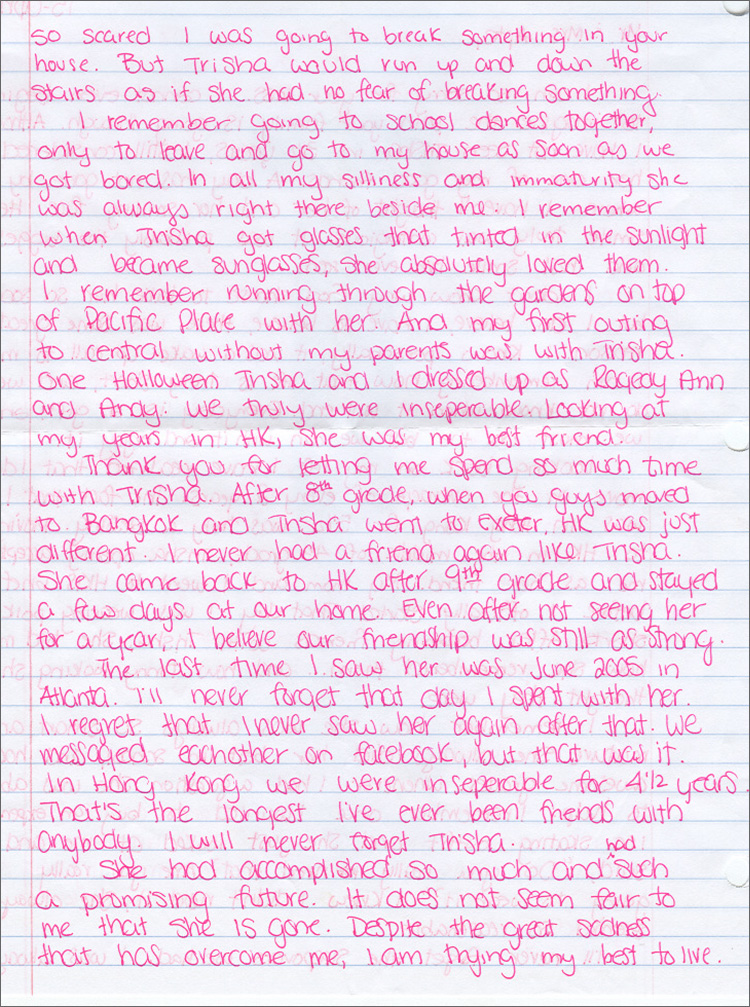 so scared I was going to break something in your
house. But Trisha would run up and down the
stairs as if she had no fear of breaking something.
I remember going to school dances together,
only to leave and go to my house as soon as we
got bored. In all my silliness and immaturity she
was always right there beside me. I remember
when Trisha got glasses that tinted in the sunlight
and became sunglasses, she absolutely loved them.
I remember running through the gardens on top
of Pacific Place with her. And my first outing
to central without my parents was with Trisha.
One Halloween Trisha and I dressed up as Ragedy Ann
and Andy. We truly were inseperable. Looking at
my years in HK, she was my best friend.
Thank you for letting me spend so much time
with Trisha. After 8th grade, when you guys moved
to Bangkok and Trisha went to Exeter, HK was just
different. I never had a friend again like Trisha.
She came back to HK after 9th grade and stayed
a few days at our home. Even after not seeing her
for a year, I believe our friendship was still as strong.
The last time I saw her was June 2005 in
Atlanta. I'll never forget that day I spent with her.
I regret that I never saw her again after that. We
messaged eachother on facebook but that was it.
In Hong Kong we were inseperable for 4 1/2 years.
That's the longest I've ever been friends with
anybody. I will never forget Trisha.
She had accomplished so much and had such
a promising future. It does not seem fair to
me that she is gone. Despite the great sadness
that has overcome me, I am trying my best to live.